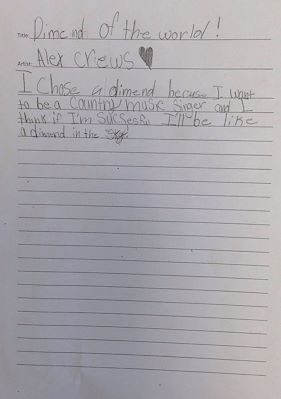 Title: Dimend of the world!
Artist: Alex Crews
I chose a dimend becuse I want
to be a country music singer and I
think if I'm sucsesful I'll be like
a dimend in the sky!